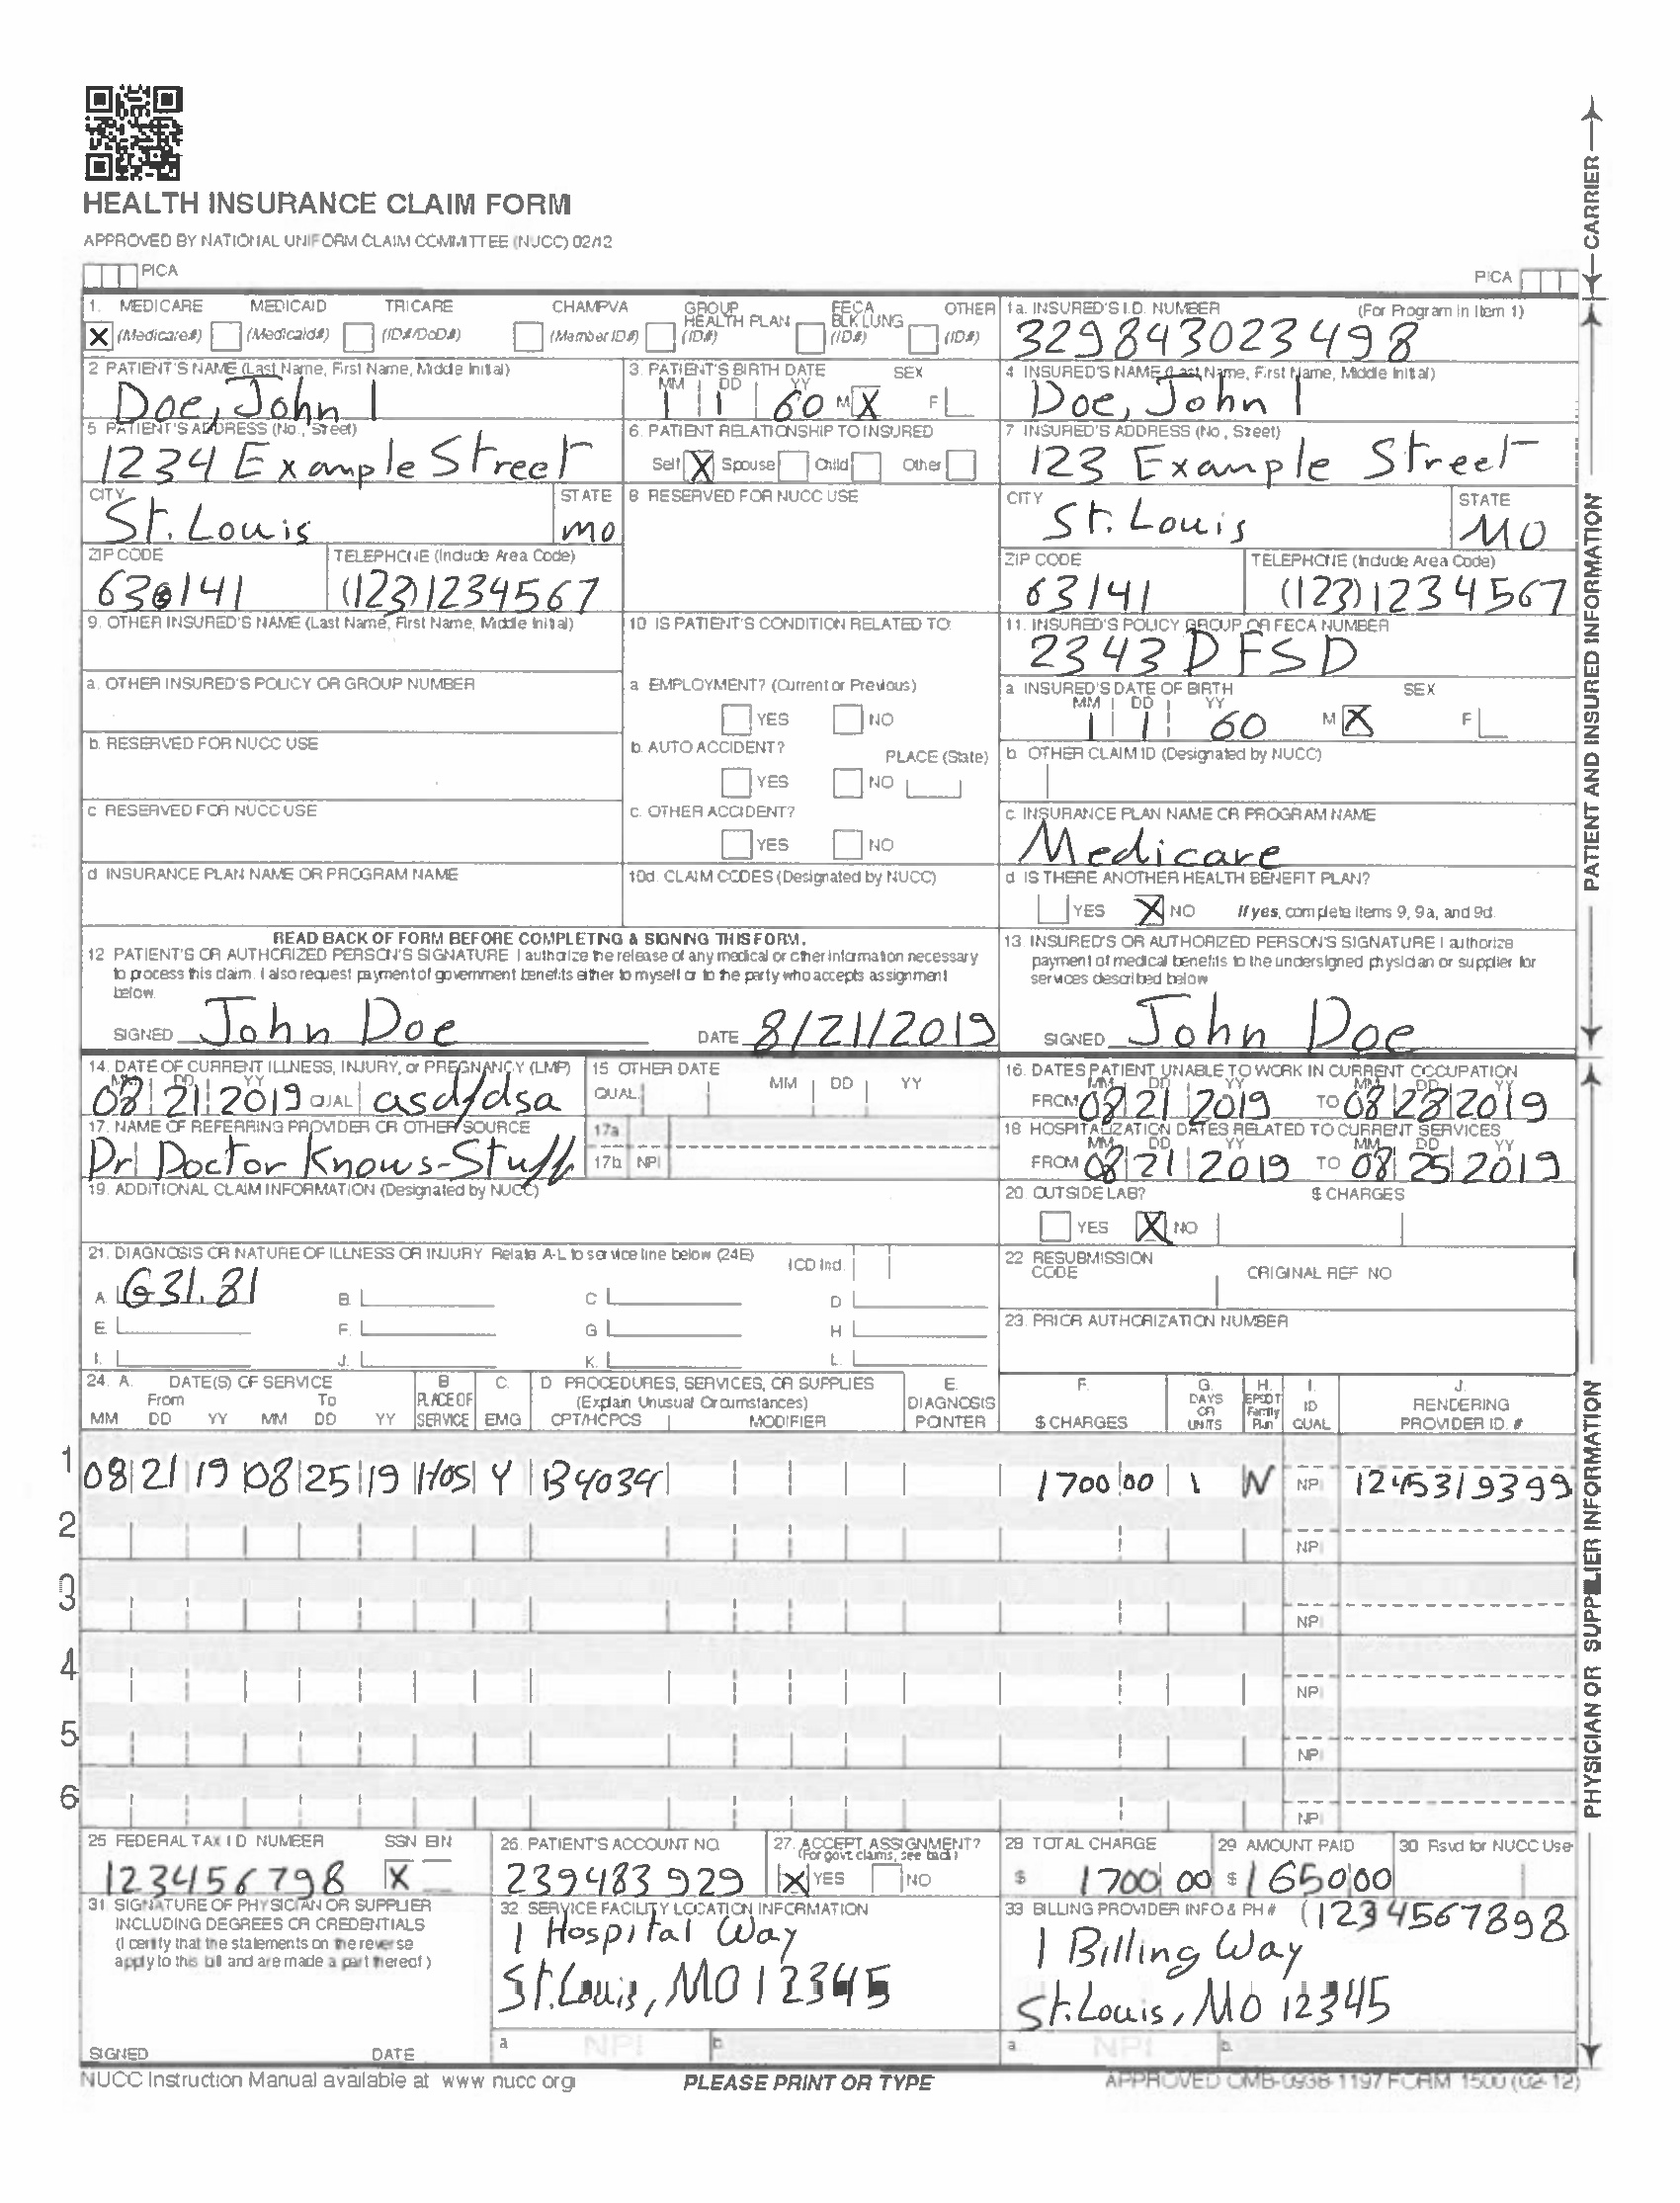 HEALTH INSURANCE CLAIM FORM
APPROVED BY NATIONAL UNIFORM CLAIM COMMITTEE (NUCC) 02/12
PICA
PICA
CARRIER
1. MEDICARE MEDICAID TRICARE CHAMPVA GROUP HEALTH PLAN FECA BLK LUNG OTHER
X (Medicare#) (Medicaid#) (ID#/DoD#) (Member ID#) (ID#) (ID#) (ID#)
1a. INSURED'S I.D. NUMBER (For Program in Item 1)
329843023498
2 PATIENT'S NAME (Last Name, First Name, Middle Initial)
Doe, John I
3. PATIENT'S BIRTH DATE SEX
MM DD YY
1 1 60 M X F
4 INSURED'S NAME (Last Name, First Name, Middle Initial)
Doe, John I
5 PATIENT'S ADDRESS (No., Street)
1234 Example Street
6. PATIENT RELATIONSHIP TO INSURED
Self X Spouse Child Other
7 INSURED'S ADDRESS (No, Street)
123 Example Street
CITY STATE
St. Louis MO
8 RESERVED FOR NUCC USE
CITY STATE
St. Louis MO
ZIP CODE TELEPHONE (Include Area Code)
630141 (123)1234567
ZIP CODE TELEPHONE (Include Area Code)
63141 (123)1234567
9. OTHER INSURED'S NAME (Last Name, First Name, Middle Initial)
10 IS PATIENT'S CONDITION RELATED TO:
11. INSURED'S POLICY GROUP OR FECA NUMBER
2343DFSD
a. OTHER INSURED'S POLICY OR GROUP NUMBER
a EMPLOYMENT? (Current or Previous)
YES NO
a INSURED'S DATE OF BIRTH SEX
MM DD YY
1 1 60 M X F
b. RESERVED FOR NUCC USE
b. AUTO ACCIDENT? PLACE (State)
YES NO
b OTHER CLAIM ID (Designated by NUCC)
c RESERVED FOR NUCC USE
c. OTHER ACCIDENT?
YES NO
c. INSURANCE PLAN NAME OR PROGRAM NAME
Medicare
d INSURANCE PLAN NAME OR PROGRAM NAME
10d. CLAIM CODES (Designated by NUCC)
d IS THERE ANOTHER HEALTH BENEFIT PLAN?
YES X NO If yes, complete items 9, 9a, and 9d.
PATIENT AND INSURED INFORMATION
READ BACK OF FORM BEFORE COMPLETING & SIGNING THIS FORM.
12 PATIENT'S OR AUTHORIZED PERSON'S SIGNATURE I authorize the release of any medical or other information necessary
to process this claim. I also request payment of government benefits either to myself or to the party who accepts assignment
below.
SIGNED John Doe DATE 8/21/2019
13 INSURED'S OR AUTHORIZED PERSON'S SIGNATURE I authorize
payment of medical benefits to the undersigned physician or supplier for
services described below
SIGNED John Doe
14. DATE OF CURRENT ILLNESS, INJURY, or PREGNANCY (LMP)
MM DD YY
08 21 2019 QUAL asdfdsa
15 OTHER DATE
QUAL MM DD YY
16. DATES PATIENT UNABLE TO WORK IN CURRENT OCCUPATION
MM DD YY MM DD YY
FROM 08 21 2019 TO 08 28 2019
17. NAME OF REFERRING PROVIDER OR OTHER SOURCE
Dr Doctor Knows-Stuff
17a
17b NPI
18 HOSPITALIZATION DATES RELATED TO CURRENT SERVICES
MM DD YY MM DD YY
FROM 08 21 2019 TO 08 25 2019
19. ADDITIONAL CLAIM INFORMATION (Designated by NUCC)
20. OUTSIDE LAB? $ CHARGES
YES X NO
21. DIAGNOSIS OR NATURE OF ILLNESS OR INJURY Relate A-L to service line below (24E) ICD Ind.
A. G31.81 B. C. D.
E. F. G. H.
I. J. K. L.
22 RESUBMISSION
CODE ORIGINAL REF NO
23. PRIOR AUTHORIZATION NUMBER
24. A. DATE(S) OF SERVICE B C. D PROCEDURES, SERVICES, OR SUPPLIES E. F. G. H. I. J.
From To PLACE OF (Explain Unusual Circumstances) DIAGNOSIS DAYS OR UNITS EPSDT Family Plan ID QUAL RENDERING
MM DD YY MM DD YY SERVICE EMG CPT/HCPCS MODIFIER POINTER $ CHARGES PROVIDER ID. #
1 08 21 19 08 25 19 Hos Y B4034 1700 00 1 N NPI 1245319399
2 NPI
3 NPI
4 NPI
5 NPI
6 NPI
PHYSICIAN OR SUPPLIER INFORMATION
25 FEDERAL TAX I D NUMBER SSN EIN
123456798 X
26. PATIENT'S ACCOUNT NO.
239483929
27. ACCEPT ASSIGNMENT?
(For govt. claims, see back)
X YES NO
28 TOTAL CHARGE
$ 1700 00
29 AMOUNT PAID
$ 1650 00
30 Rsvd for NUCC Use
31 SIGNATURE OF PHYSICIAN OR SUPPLIER
INCLUDING DEGREES OR CREDENTIALS
(I certify that the statements on the reverse
apply to this bill and are made a part thereof)
SIGNED DATE
32. SERVICE FACILITY LOCATION INFORMATION
1 Hospital Way
St. Louis, MO 12345
a NPI b.
33 BILLING PROVIDER INFO & PH # (1234567898
1 Billing Way
St. Louis, MO 12345
a. NPI b.
NUCC Instruction Manual available at www nucc org
PLEASE PRINT OR TYPE
APPROVED OMB-0938-1197 FORM 1500 (02-12)